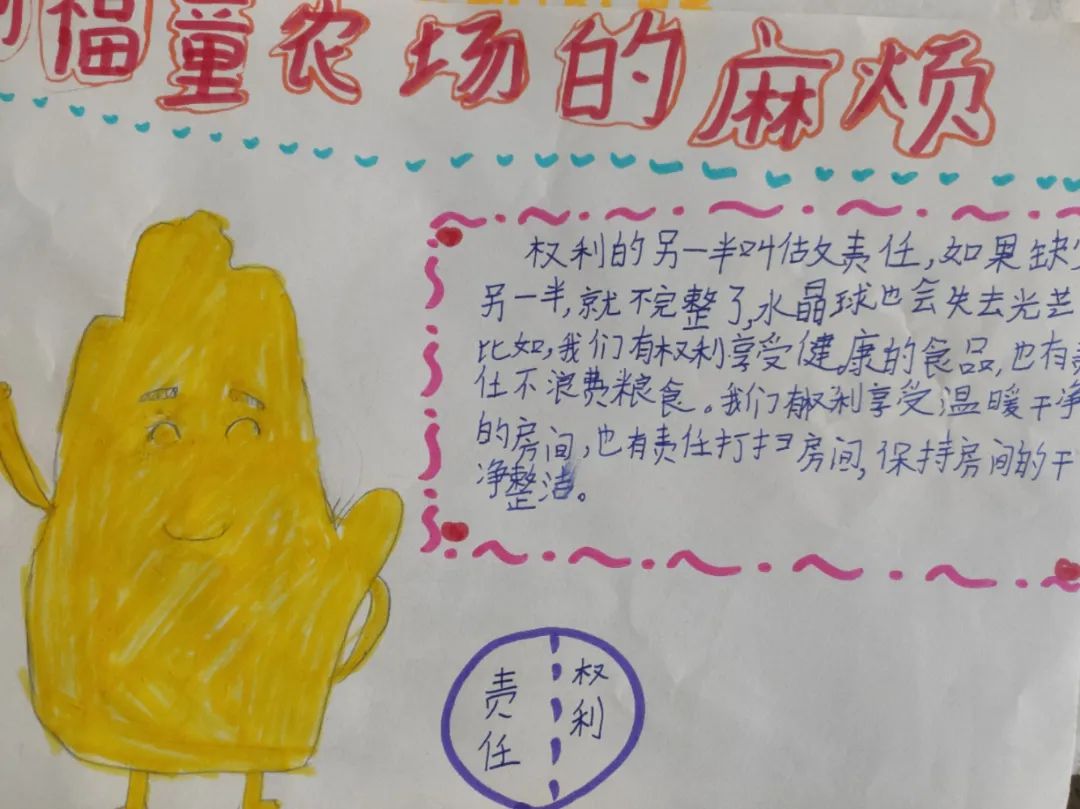 福童农场的麻烦
权利的另一半叫做责任，如果缺少
另一半，就不完整了，水晶球也会失去光芒
比如，我们有权利享受健康的食品，也有责
任不浪费粮食。我们有权利享受温暖干净
的房间，也有责任打扫房间，保持房间的干
净整洁。
责任
权利